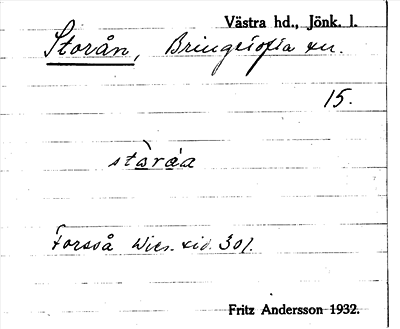 Västra hd., Jönk. l.
Storån, Bringetofta sn.
15.
stàràa
Forsså Wies. sid. 301.
Fritz Andersson 1932.